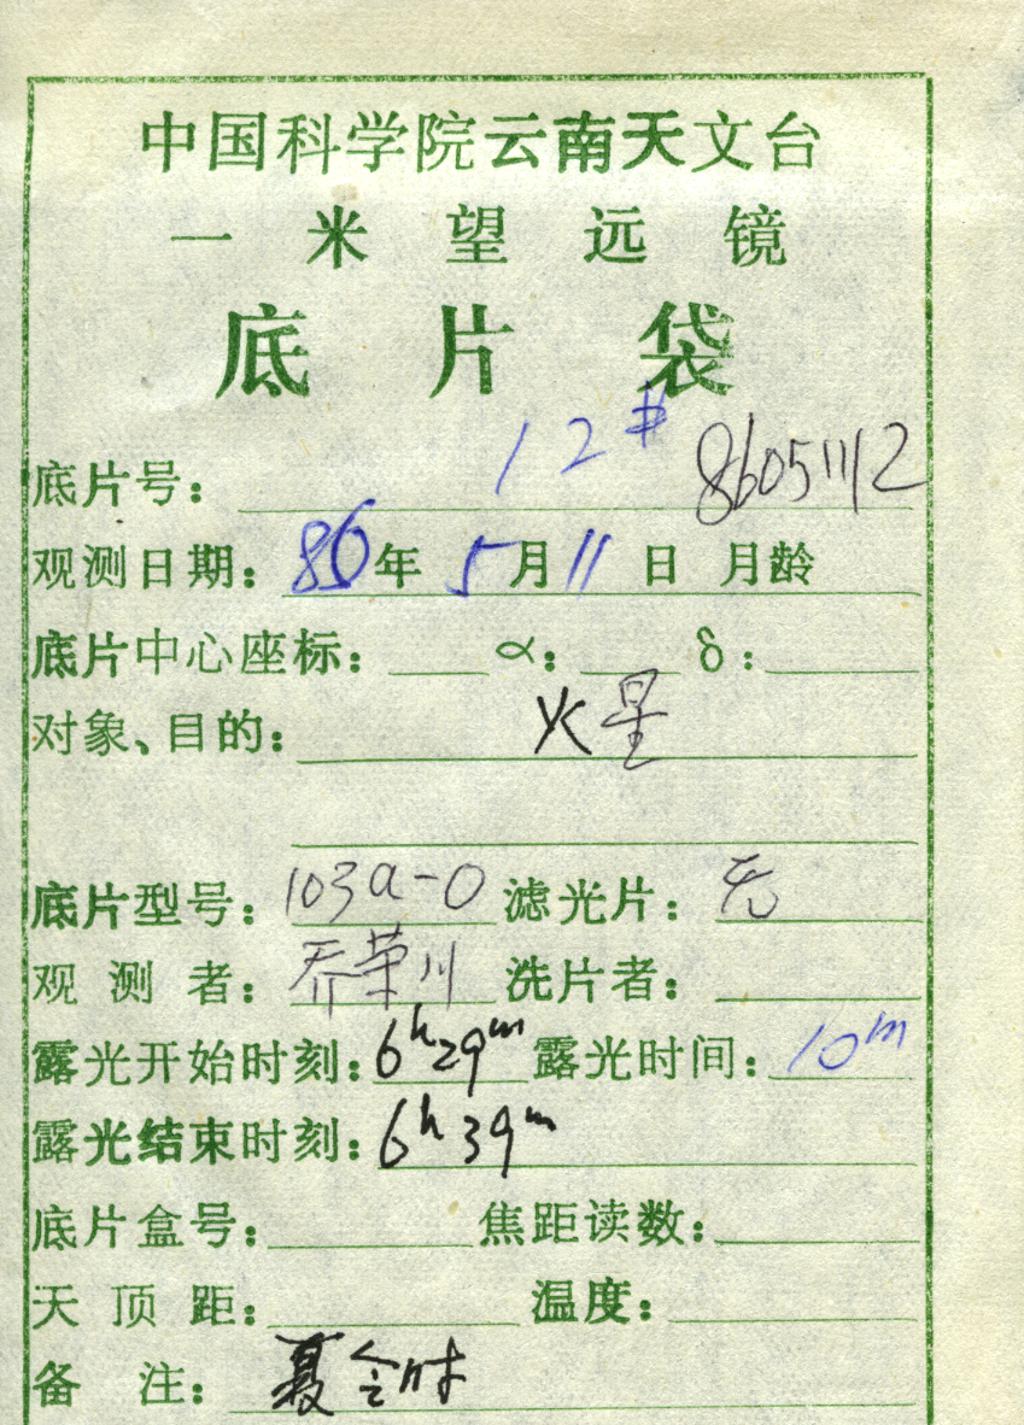 中国科学院云南天文台
一米望远镜
底片袋
底片号： 12# 86051112
观测日期：86年5月11日 月龄
底片中心座标： α： δ：
对象、目的： 火星
底片型号：103a-O 滤光片：无
观测者：乔荣川 洗片者：
露光开始时刻：6h29m 露光时间：10m
露光结束时刻：6h39m
底片盒号： 焦距读数：
天顶距： 温度：
备注：夏令时